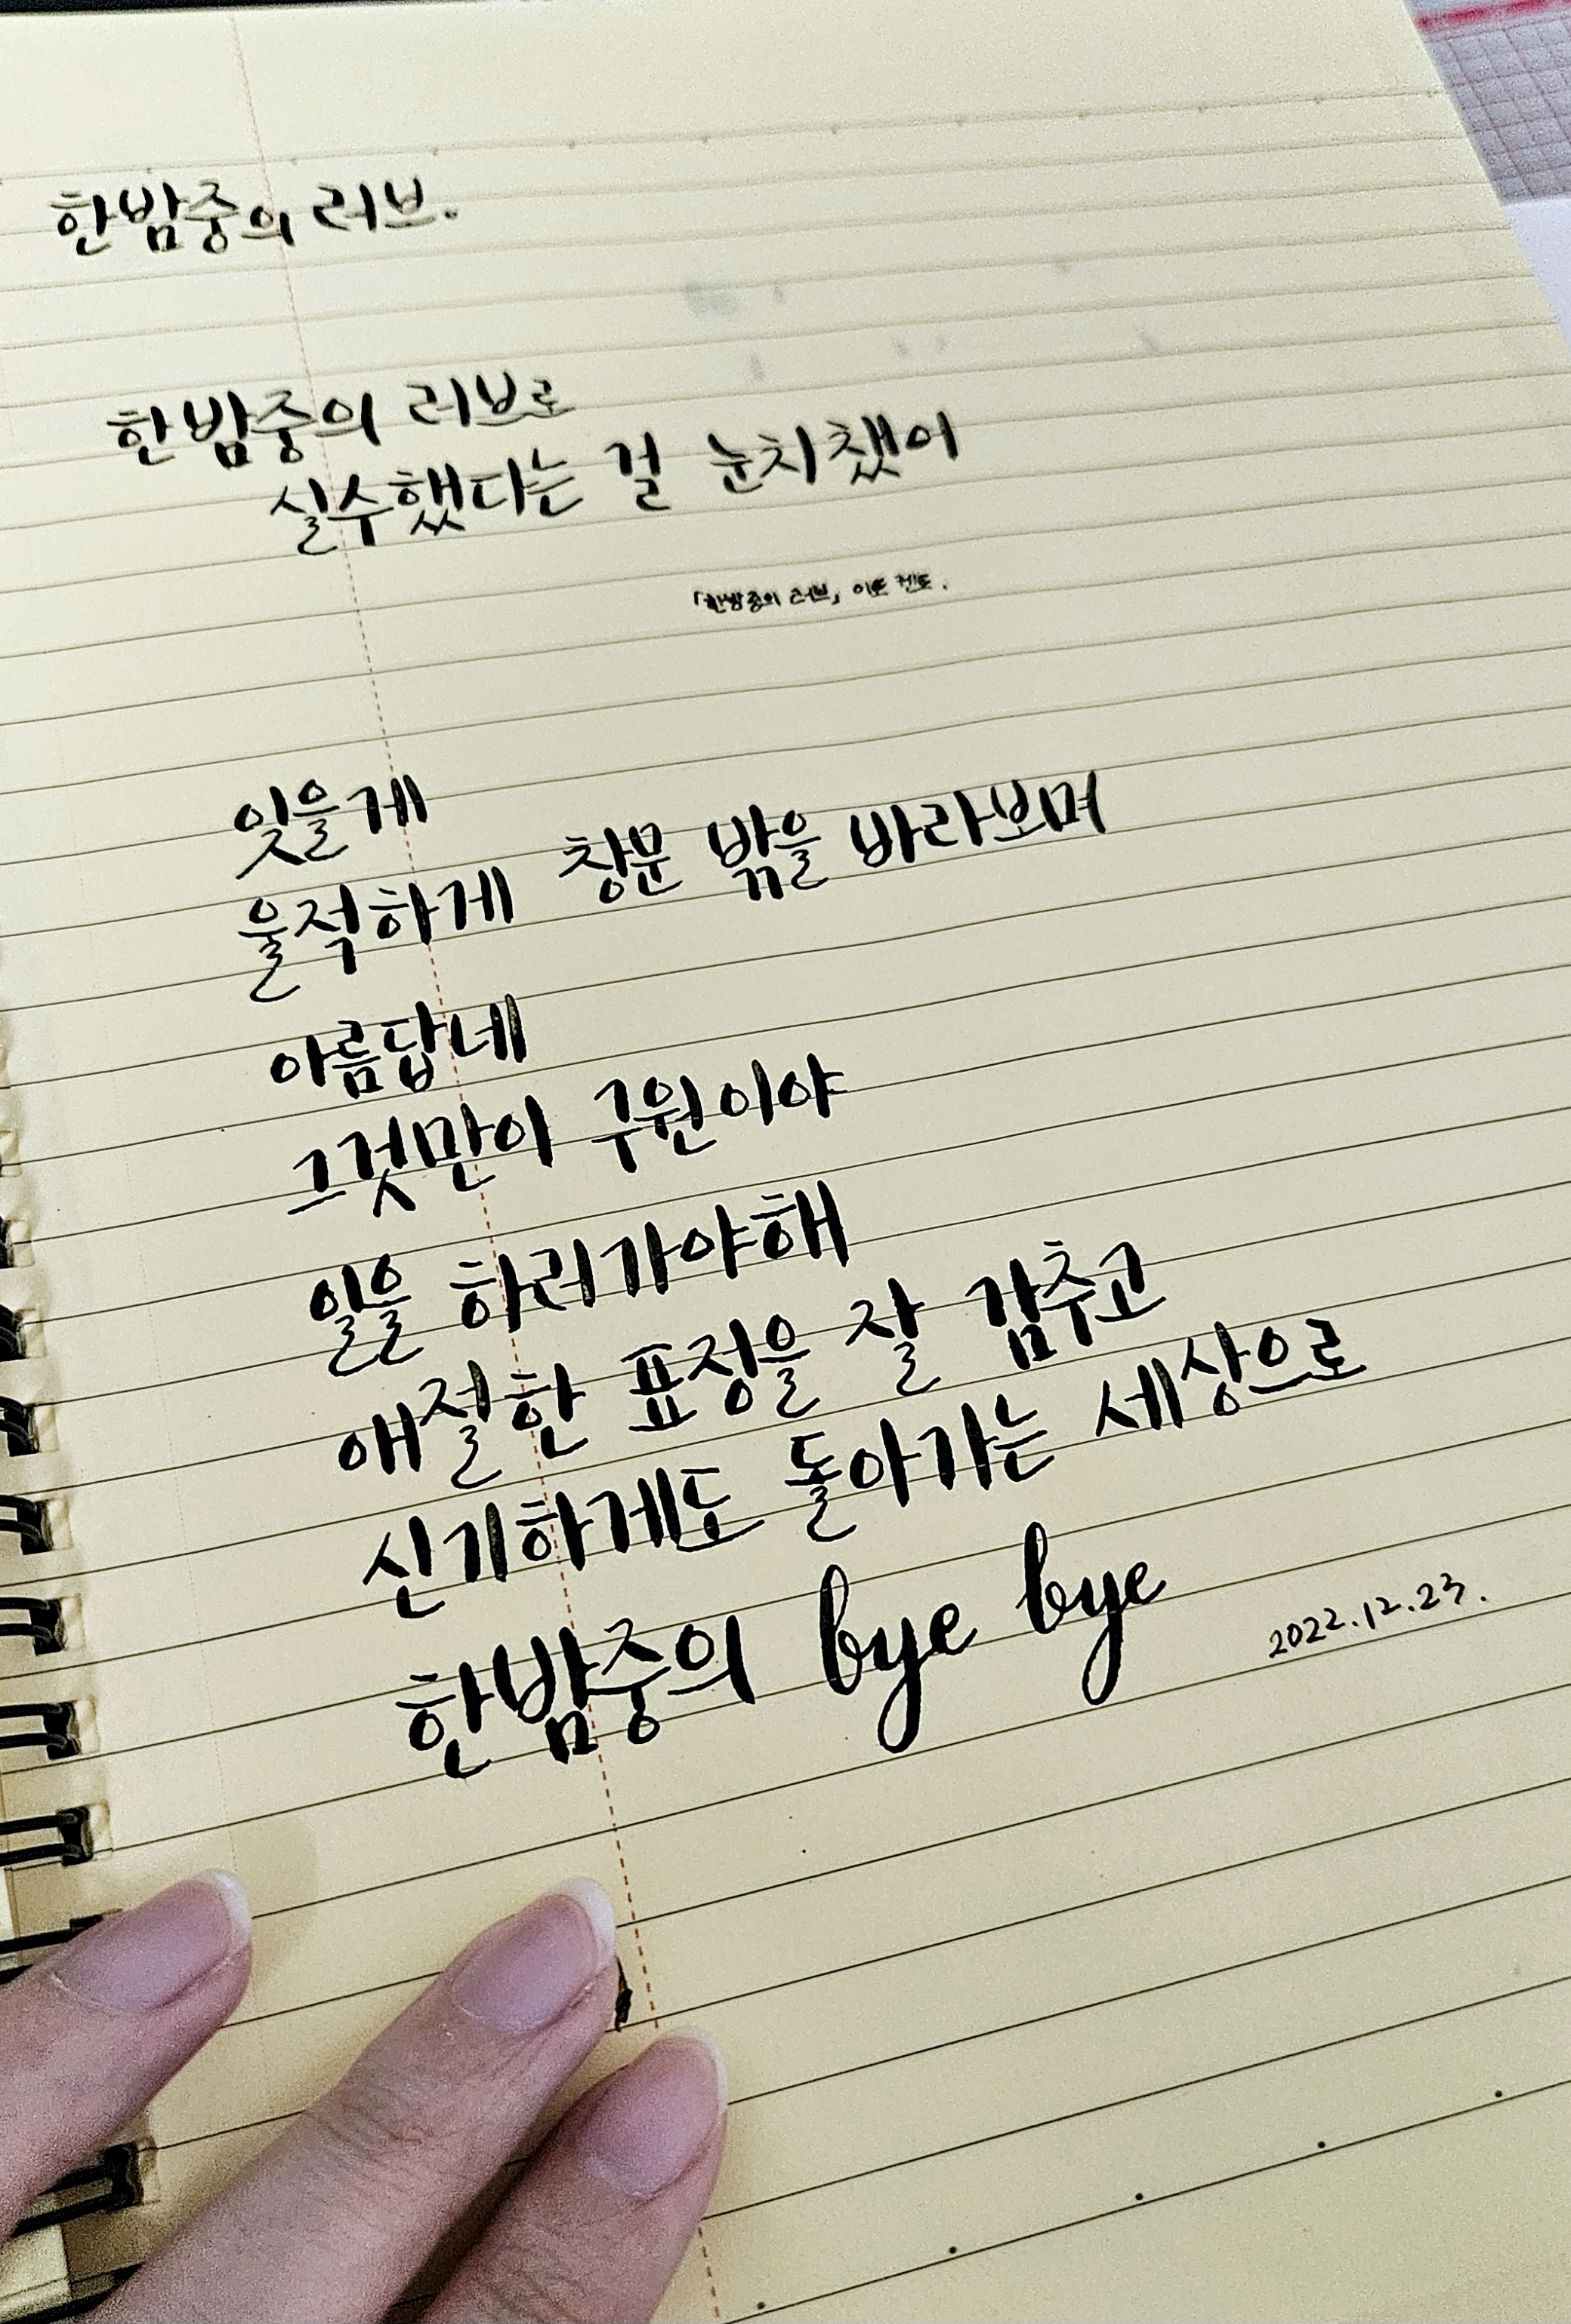 한밤중의 러브.
한밤중의 러브로
실수했다는 걸 눈치챘어
「한밤중의 러브」 이토 켄토.
잊을게
울적하게 창문 밖을 바라보며
아름답네
그것만이 구원이야
일을 하러가야해
애절한 표정을 잘 감추고
신기하게도 돌아가는 세상으로
한밤중의 bye bye
2022.12.23.